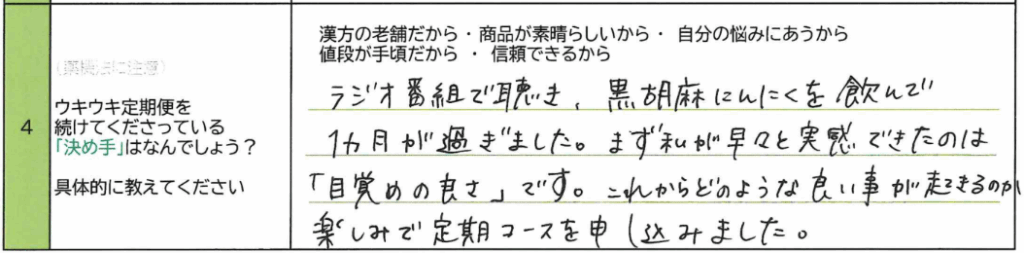 漢方の老舗だから・商品が素晴らしいから・ 自分の悩みにあうから
値段が手頃だから ・ 信頼できるから
(薬機法に注意)
4
ウキウキ定期便を
続けてくださっている
「決め手」はなんでしょう？
具体的に教えてください
ラジオ番組で聴き、黒胡麻にんにくを飲んで
1カ月が過ぎました。まず私が早々と実感できたのは
「目覚めの良さ」です。これからどのような良い事が起きるのか
楽しみで定期コースを申し込みました。